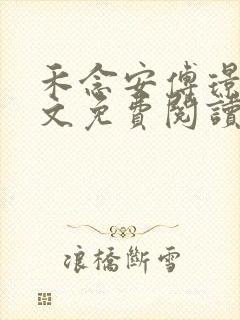 禾念安傅璟
文免費閱讀
浪橋斷雪